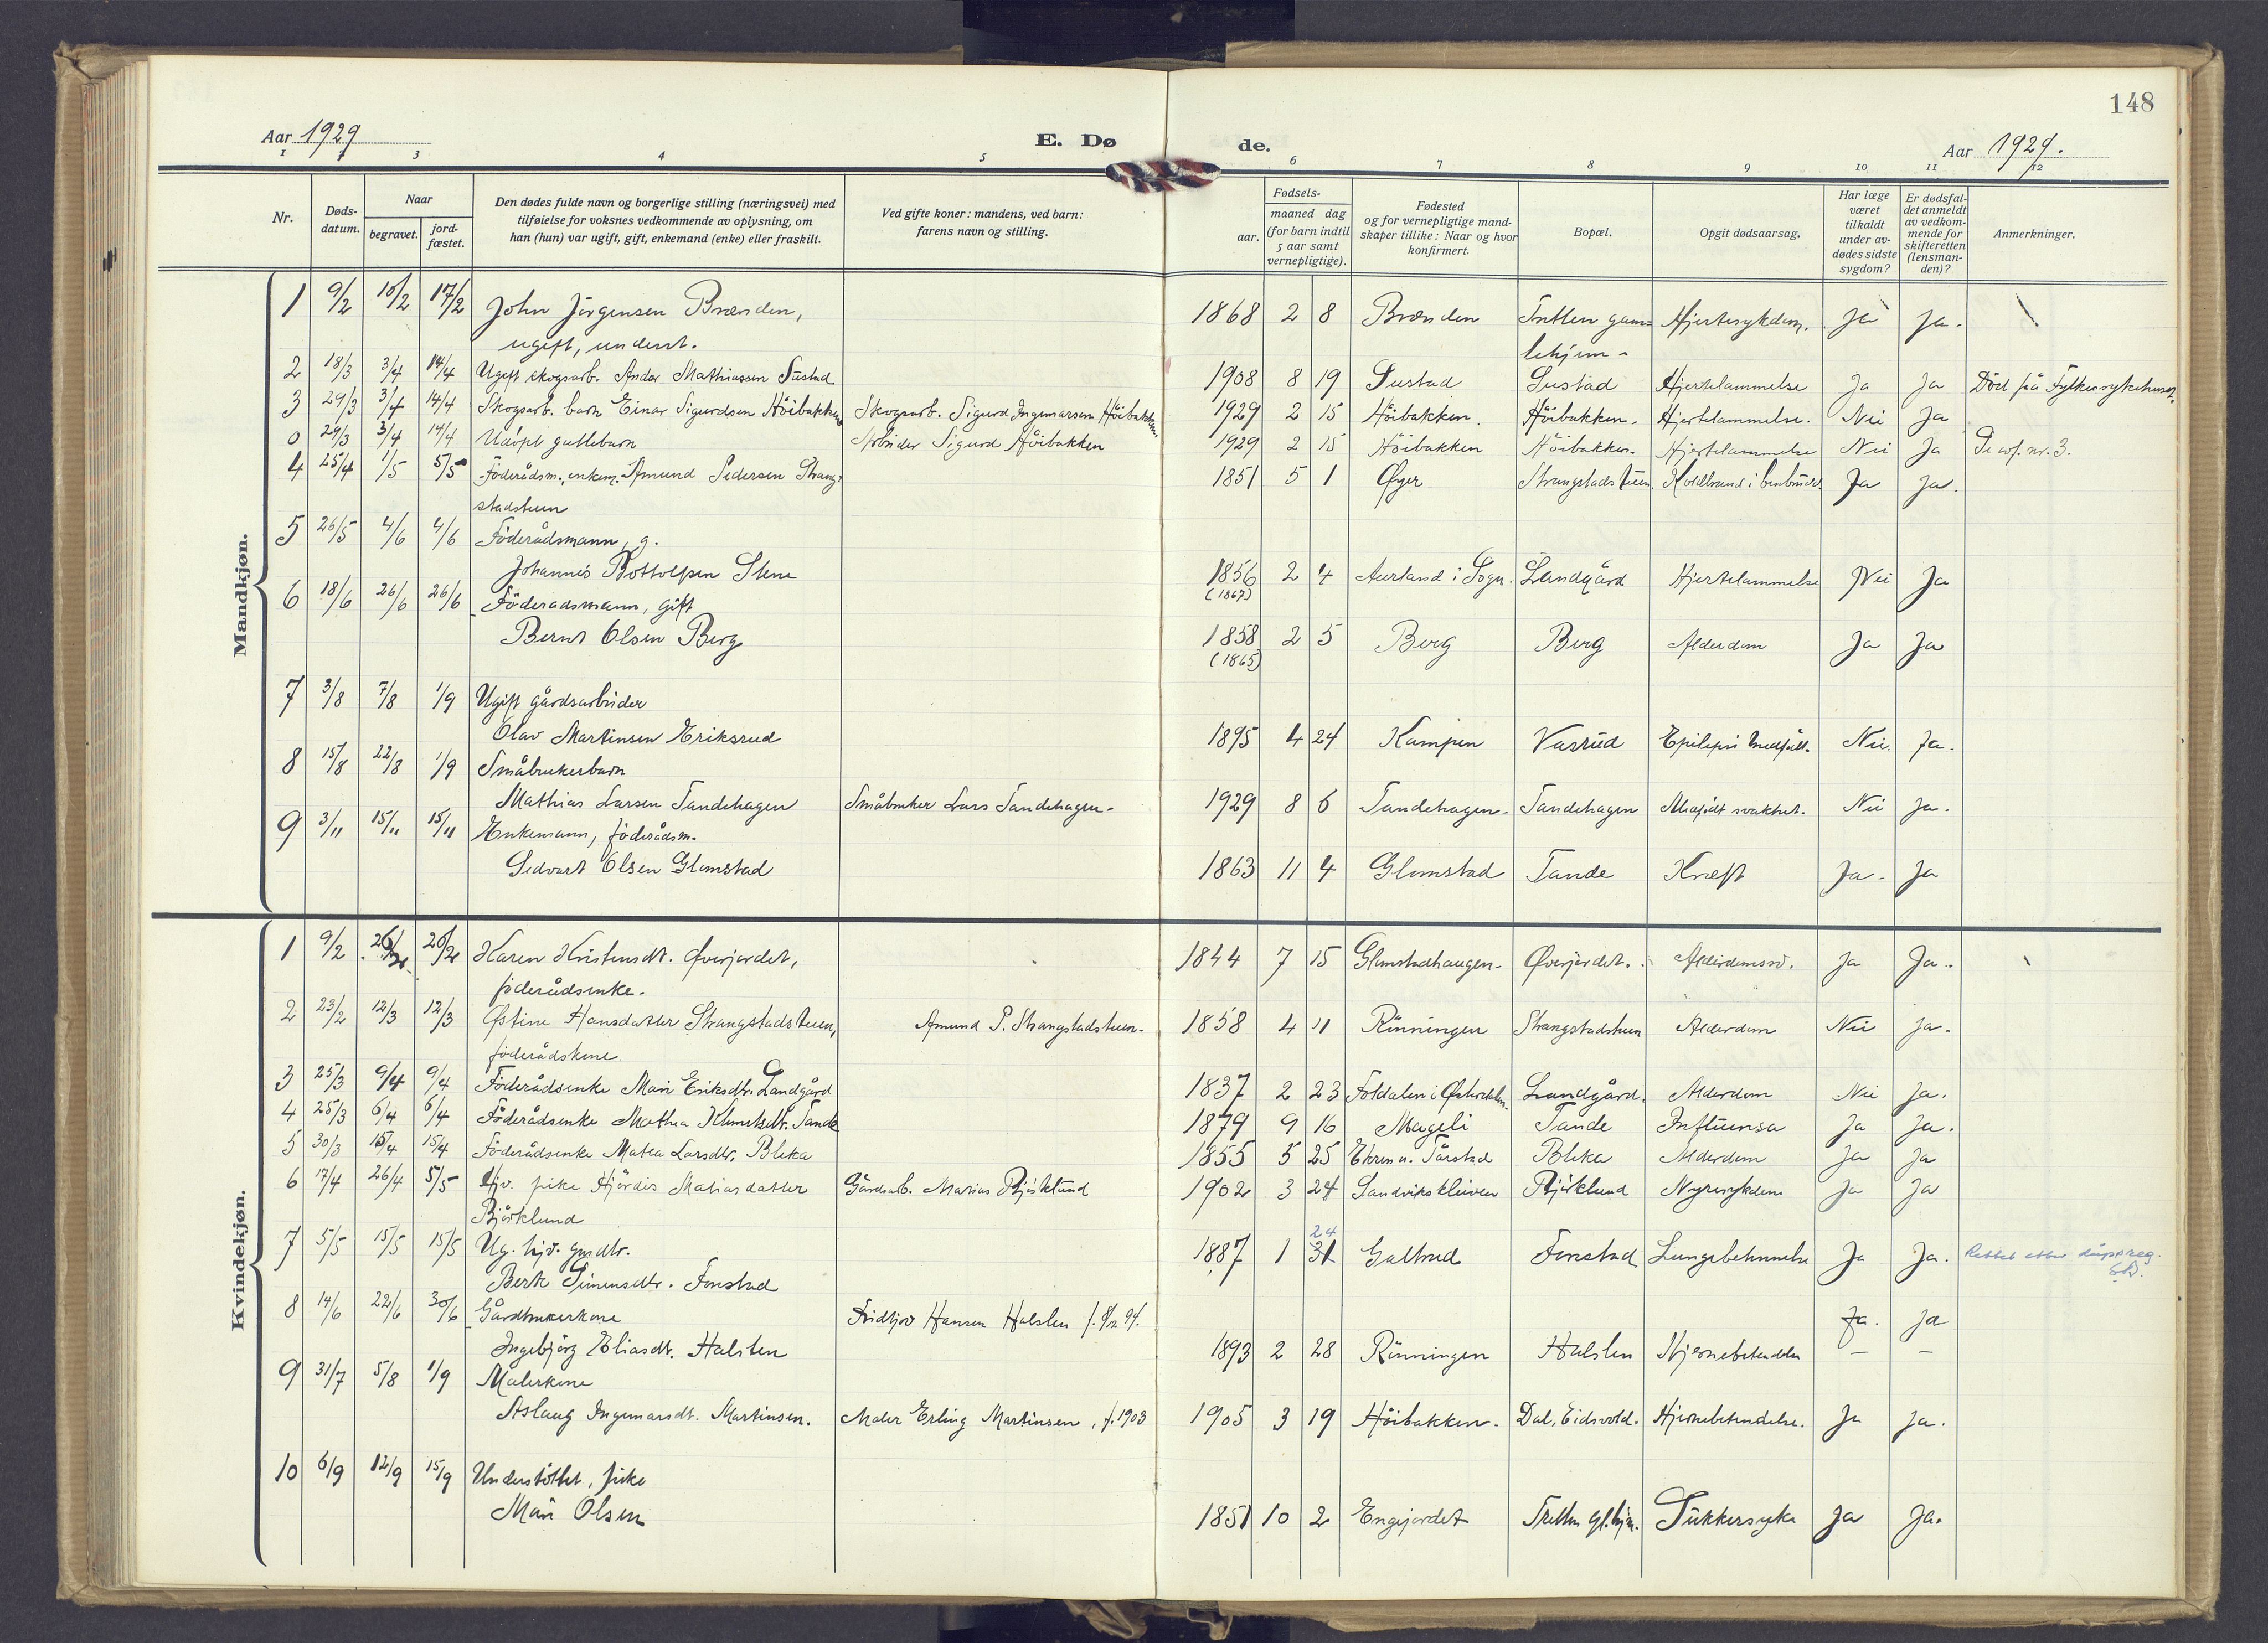 148
Aar 1929
E. Dø
de.
Aar 1929.
1 2 3 4 5 6 7 8 9 10 11 12
Nr.
Døds-
datum.
Naar
begravet.
jord-
fæstet.
Den dødes fulde navn og borgerlige stilling (næringsvei) med
tilføielse for voksnes vedkommende av oplysning, om
han (hun) var ugift, gift, enkemand (enke) eller fraskilt.
Ved gifte koner: mandens, ved barn:
farens navn og stilling.
Fødsels-
aar.
maaned dag
(for barn indtil
5 aar samt
vernepligtige).
Fødested
og for vernepligtige mand-
skaper tillike: Naar og hvor
konfirmert.
Bopæl.
Opgit dødsaarsag.
Har læge
været
tilkaldt
under av-
dødes sidste
sygdom?
Er dødsfal-
det anmeldt
av vedkom-
mende for
skifteretten
(lensman-
den)?
Anmerkninger.
Mandkjøn.
1 9/2 16/2 17/2 John Jörgensen Brænden, 1868 2 8 Brænden Tretten gam- Hjertesykdom. Ja Ja.
ugift, underst. lehjem
2 18/3 3/4 14/4 Ugift skogsarb. Anders Mathiassen Sustad 1908 8 19 Sustad Sustad Hjertelammelse Ja Ja Död på Fylkessykehuset.
3 29/3 3/4 14/4 Skogsarb. barn Einar Sigurdsen Höibakken Skogsarb. Sigurd Ingemarsen Höibakken. 1929 2 15 Höibakken. Höibakken. Hjertelammelse. Nei Ja
0 29/3 3/4 14/4 Udöpt guttebarn Arbeider Sigurd Höibakken 1929 2 15 Höibakken Höibakken. Hjertelammelse Nei Ja nr. 3.
4 25/4 1/5 5/5 Föderådsm., enkem. Amund Pedersen Strang- 1851 5 1 Øyer Strangstadstuen Koldbrand i benbrudd Ja Ja.
stadstuen
5 26/5 4/6 4/6 Föderådsmann, g.
Johannes Bottolfsen Stene 1856 2 4 Aurland i Sogn. Landgård Hjertelammelse Nei Ja
(1867)
6 18/6 26/6 26/6 Föderadsmann, gift
Bernt Olsen Berg 1858 2 5 Berg Berg Alderdom Ja Ja
(1865)
7 3/8 7/8 1/9 Ugift gårdsarbeider
Olav Martinsen Eriksrud 1895 4 24 Kampen Vasrud Epilepsi medfödt. Nei. Ja.
8 15/8 22/8 1/9 Småbrukerbarn
Mathias Larsen Tandehagen Småbruker Lars Tandehagen. 1929 8 6 Tandehagen. Tandehagen Medfödt svakhet. Nei Ja.
9 3/11 15/11 15/11 Enkemann, föderådsm.
Sedvart Olsen Glomstad 1863 11 4 Glomstad Tande Kreft Ja. Ja
Kvindekjøn.
1 9/2 26/2 26/2 Karen Kristensdt. Øverjordet, 1844 7 15 Glomstadhaugen. Øverjordet. Alderdomssv. Ja Ja.
föderådsenke.
2 23/2 12/3 12/3 Østine Hansdatter Strangstadstuen, Amund P. Strangstadstuen. 1858 4 11 Rönningen Strangstadstuen Alderdom Nei Ja.
föderådskone.
3 25/3 9/4 9/4 Föderådsenke Mari Eriksdtr. Landgård 1837 2 23 Foldalen i Østerdalen. Landgård. Alderdom Nei Ja.
4 25/3 6/4 6/4 Föderådsenke Mathea Klemetsdt. Tande 1879 9 16 Mageli Tande Influensa Ja Ja.
5 30/3 15/4 15/4 Föderådsenke Matea Larsdtr. Bleka 1855 5 25 Ekren u. Tårstad Bleka Alderdom Ja Ja
6 17/4 26/4 5/5 Hjv. pike Hjördis Matiasdatter Gårdsarb. Matias Björklund 1902 3 24 Sandvikskleiven Björklund Nyresykdom Ja Ja
Björklund
7 5/5 15/5 15/5 Ug. hjv. gmdtr. 24
Berte Simensdtr. Fonstad 1887 1 31 Galtrud Fonstad Lungebetennelse Ja Ja. Rettet etter dåpsreg.
8 14/6 22/6 30/6 Gårdbrukerkone Fridtjov Hansen Halsten f. 8/12 94. Ja. Ja
Ingebjörg Eliasdt. Halsten 1893 2 28 Rönningen Halsten Hjernebetendelse
9 31/7 5/8 1/9 Malerkone
Aslaug Ingemarsdt. Martinsen. Maler Erling Martinsen, f. 1903 1905 3 19 Höibakken. Dal, Eidsvold. Hjernebetendelse. Ja Ja.
10 6/9 12/9 15/9 Understöttet, pike
Mari Olsen 1851 10 2 Engjordet Tretten gl.hjm. Sukkersyke Ja Ja.